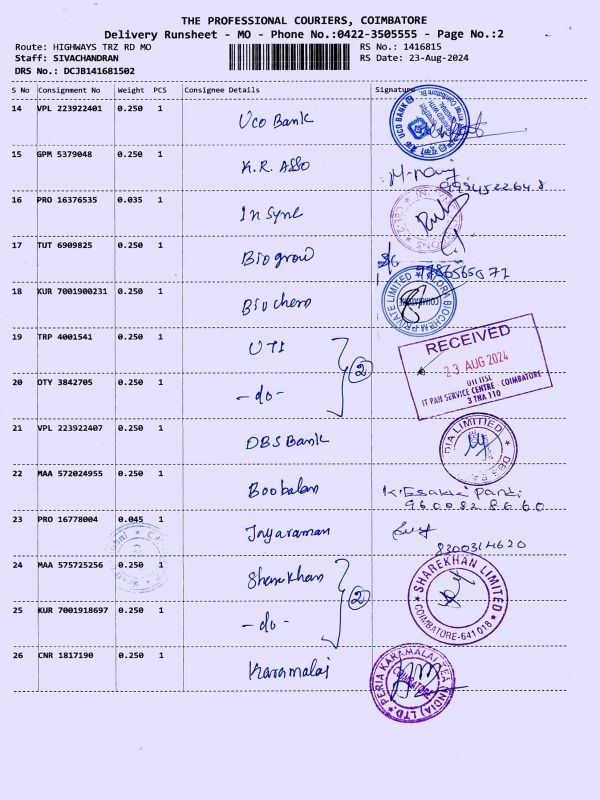 THE PROFESSIONAL COURIERS, COIMBATORE
Delivery Runsheet - MO - Phone No.:0422-3505555 - Page No.:2
Route: HIGHWAYS TRZ RD MO RS No.: 1416815
Staff: SIVACHANDRAN RS Date: 23-Aug-2024
DRS No.: DCJB141681502
S No Consignment No Weight PCS Consignee Details Signature
14 VPL 223922401 0.250 1 Uco Bank
UCO BANK
15 GPM 5379048 0.250 1 K.R. ASSO
16 PRO 16376535 0.035 1 In Sync
17 TUT 6909825 0.250 1 Biogrow
9786565077
18 KUR 7001900231 0.250 1 Biochem
BIOCHEM PRIVATE LIMITED
19 TRP 4001541 0.250 1 UTI
20 OTY 3842705 0.250 1 -do- 2
RECEIVED
23 AUG 2024
UTI ITSL
IT PAN SERVICE CENTRE - COIMBATORE
3 TNA 110
21 VPL 223922407 0.250 1 DBS Bank
22 MAA 572024955 0.250 1 Boobalan
9600828660
23 PRO 16778004 0.045 1 Jayaraman
8300314620
24 MAA 575725256 0.250 1 Sharekhan
25 KUR 7001918697 0.250 1 -do- 2
SHAREKHAN LIMITED
COIMBATORE-641018
26 CNR 1817190 0.250 1 Karamalai
PERIA KARAMALAI TEA (INDIA) LTD.
COIMBATORE